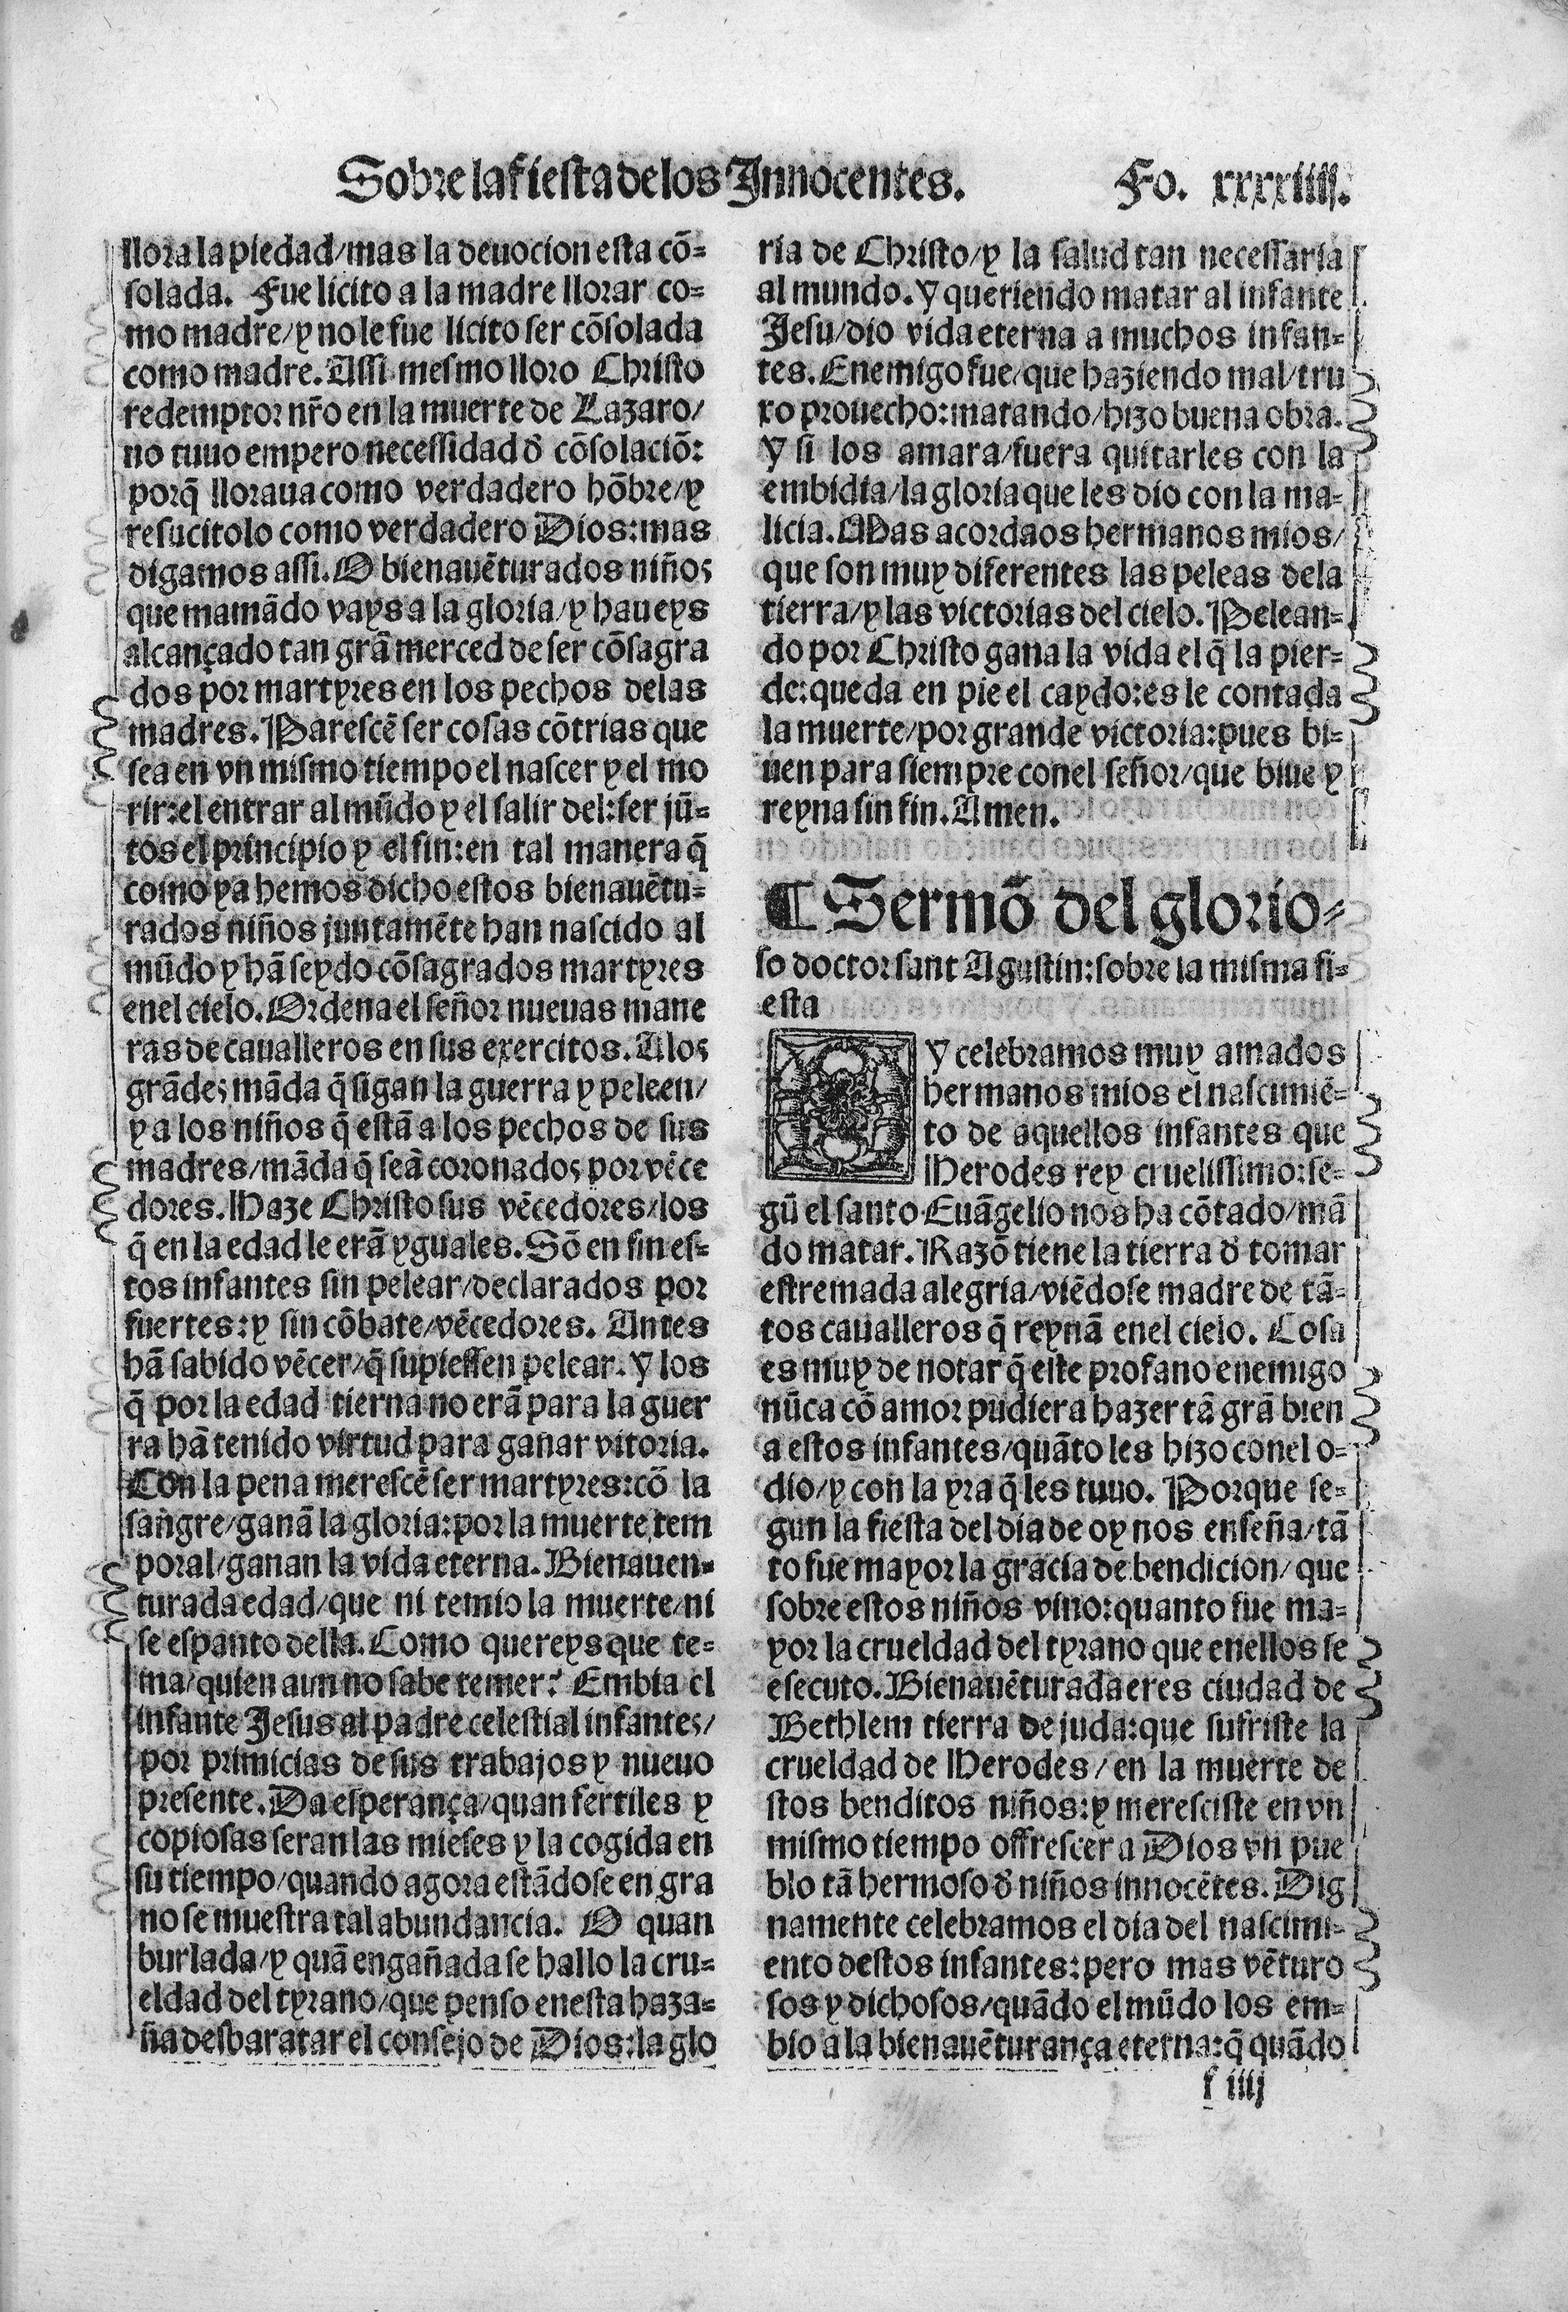 Sobre la fiesta de los Innocentes. Fo. xxxxiiij.
llora la piedad/mas la deuocion esta cõ-
solada. Fue licito a la madre llorar co-
mo madre/y no le fue licito ser cõsolada
como madre. Assi mesmo lloro Christo
redemptor nr̃o en la muerte de Lazaro/
no tuuo empero necessidad d̃ cõsolaciõ:
porq̃ lloraua como verdadero hõbre/y
resucitolo como verdadero Dios: mas
digamos assi. O bienauẽturados niños
que mamãdo vays a la gloria/y haueys
alcançado tan grã merced de ser cõsagra
dos por martyres en los pechos delas
madres. Parescẽ ser cosas cõtrias que
sea en vn mismo tiempo el nascer y el mo
rir: el entrar al mũdo y el salir del: ser jũ-
tos el principio y el fin: en tal manera q̃
como ya hemos dicho estos bienauẽtu-
rados niños juntamẽte han nascido al
mũdo y hã seydo cõsagrados martyres
enel cielo. Ordena el señor nueuas mane
ras de caualleros en sus exercitos. A los
grãdes mãda q̃ sigan la guerra y peleen/
y a los niños q̃ estã a los pechos de sus
madres/mãda q̃ seã coronados por vẽce
dores. Haze Christo sus vẽcedores/los
q̃ en la edad le erã yguales. Sõ en fin es-
tos infantes sin pelear/declarados por
fuertes: y sin cõbate/vẽcedores. Antes
hã sabido vẽcer/q̃ supiessen pelear. Y los
q̃ por la edad tierna no erã para la guer
ra hã tenido virtud para ganar vitoria.
Con la pena merescẽ ser martyres: cõ la
sangre/ganã la gloria: por la muerte tem
poral/ganan la vida eterna. Bienauen-
turada edad/que ni temio la muerte/ni
se espanto della. Como quereys que te-
ma/quien aun no sabe temer? Embia el
infante Jesus al padre celestial infantes/
por primicias de sus trabajos y nueuo
presente. Da esperança/quan fertiles y
copiosas seran las mieses y la cogida en
su tiempo/quando agora estãdose en gra
no se muestra tal abundancia. O quan
burlada/y quã engañada se hallo la cru-
eldad del tyrano/que penso enesta haza-
ña desbaratar el consejo de Dios: la glo
ria de Christo/y la salud tan necessaria
al mundo. Y queriendo matar al infante
Jesu/dio vida eterna a muchos infan-
tes. Enemigo fue/que haziendo mal/tru
xo prouecho: matando/hizo buena obra.
Y si los amara/fuera quitarles con la
embidia/la gloria que les dio con la ma-
licia. Mas acordaos hermanos mios/
que son muy diferentes las peleas dela
tierra/y las victorias del cielo. Pelean-
do por Christo gana la vida el q̃ la pier-
de: queda en pie el caydo: es le contada
la muerte/por grande victoria: pues bi-
uen para siempre conel señor/que biue y
reyna sin fin. Amen.
¶ Sermõ del glorio-
so doctor sant Agustin: sobre la misma fi-
esta
Oy celebramos muy amados
hermanos mios el nascimiẽ-
to de aquellos infantes que
Herodes rey cruelissimo: se-
gũ el santo Euãgelio nos ha cõtado/mã
do matar. Razõ tiene la tierra d̃ tomar
estremada alegria/viẽdose madre de tã-
tos caualleros q̃ reynã enel cielo. Cosa
es muy de notar q̃ este profano enemigo
nũca cõ amor pudiera hazer tã grã bien
a estos infantes/quãto les hizo conel o-
dio/y con la yra q̃ les tuuo. Porque se-
gun la fiesta del dia de oy nos enseña/tã
to fue mayor la gracia de bendicion/que
sobre estos niños vino: quanto fue ma-
yor la crueldad del tyrano que enellos se
esecuto. Bienauẽturada eres ciudad de
Bethlem tierra de juda: que sufriste la
crueldad de Herodes/en la muerte de
stos benditos niños: y meresciste en vn
mismo tiempo offrescer a Dios vn pue
blo tã hermoso d̃ niños innocẽtes. Dig
namente celebramos el dia del nascimi-
ento destos infantes: pero mas vẽturo
sos y dichosos/quãdo el mũdo los em-
bio a la bienauẽturança eterna: q̃ quãdo
f iiij